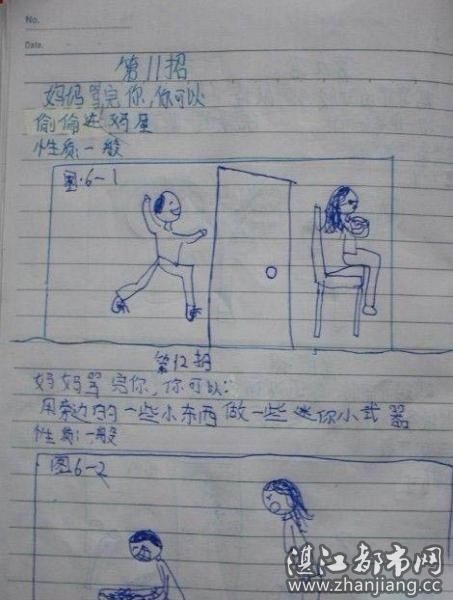 No.
Date.
第11招
妈妈骂完你,你可以
偷偷
性质:一般
图·6-1
第12招
妈妈骂完你,你可以:
用旁边的一些小东西做一些迷你小武器
性质:一般
图6-2
湛江都市网
www.zhanjiang.cc